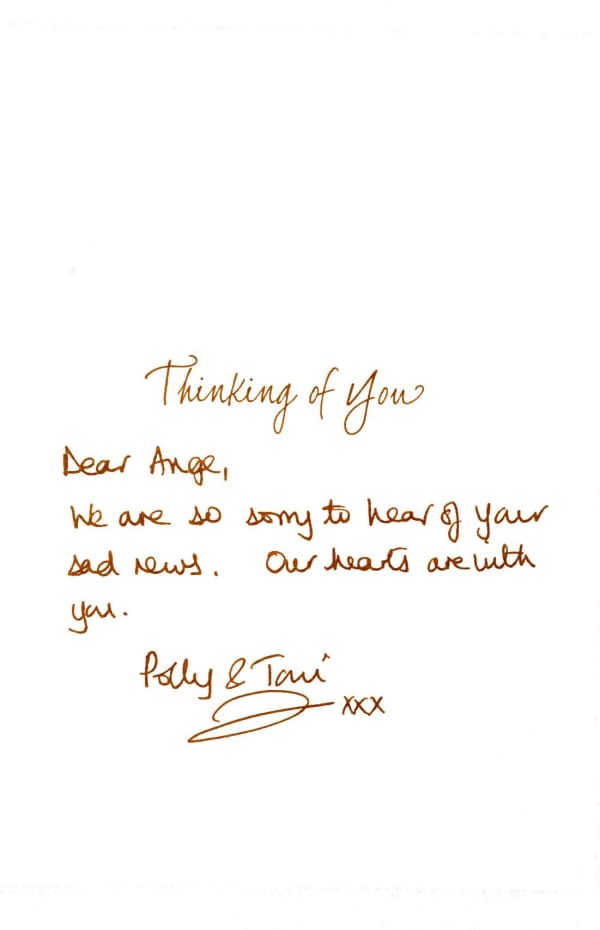 Thinking of You
Dear Ange,
We are so sorry to hear of your
sad news. Our hearts are with
you.
Polly & Toni
xxx